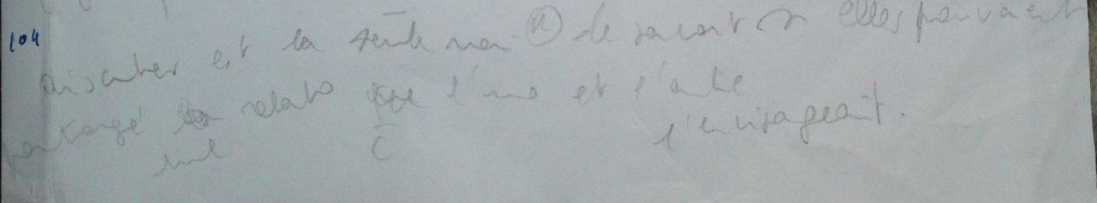 104
discuter est la seule (a) de savoir si elles pouvaient
partagé relato que l'une et l'autre
une c l'envisageait.